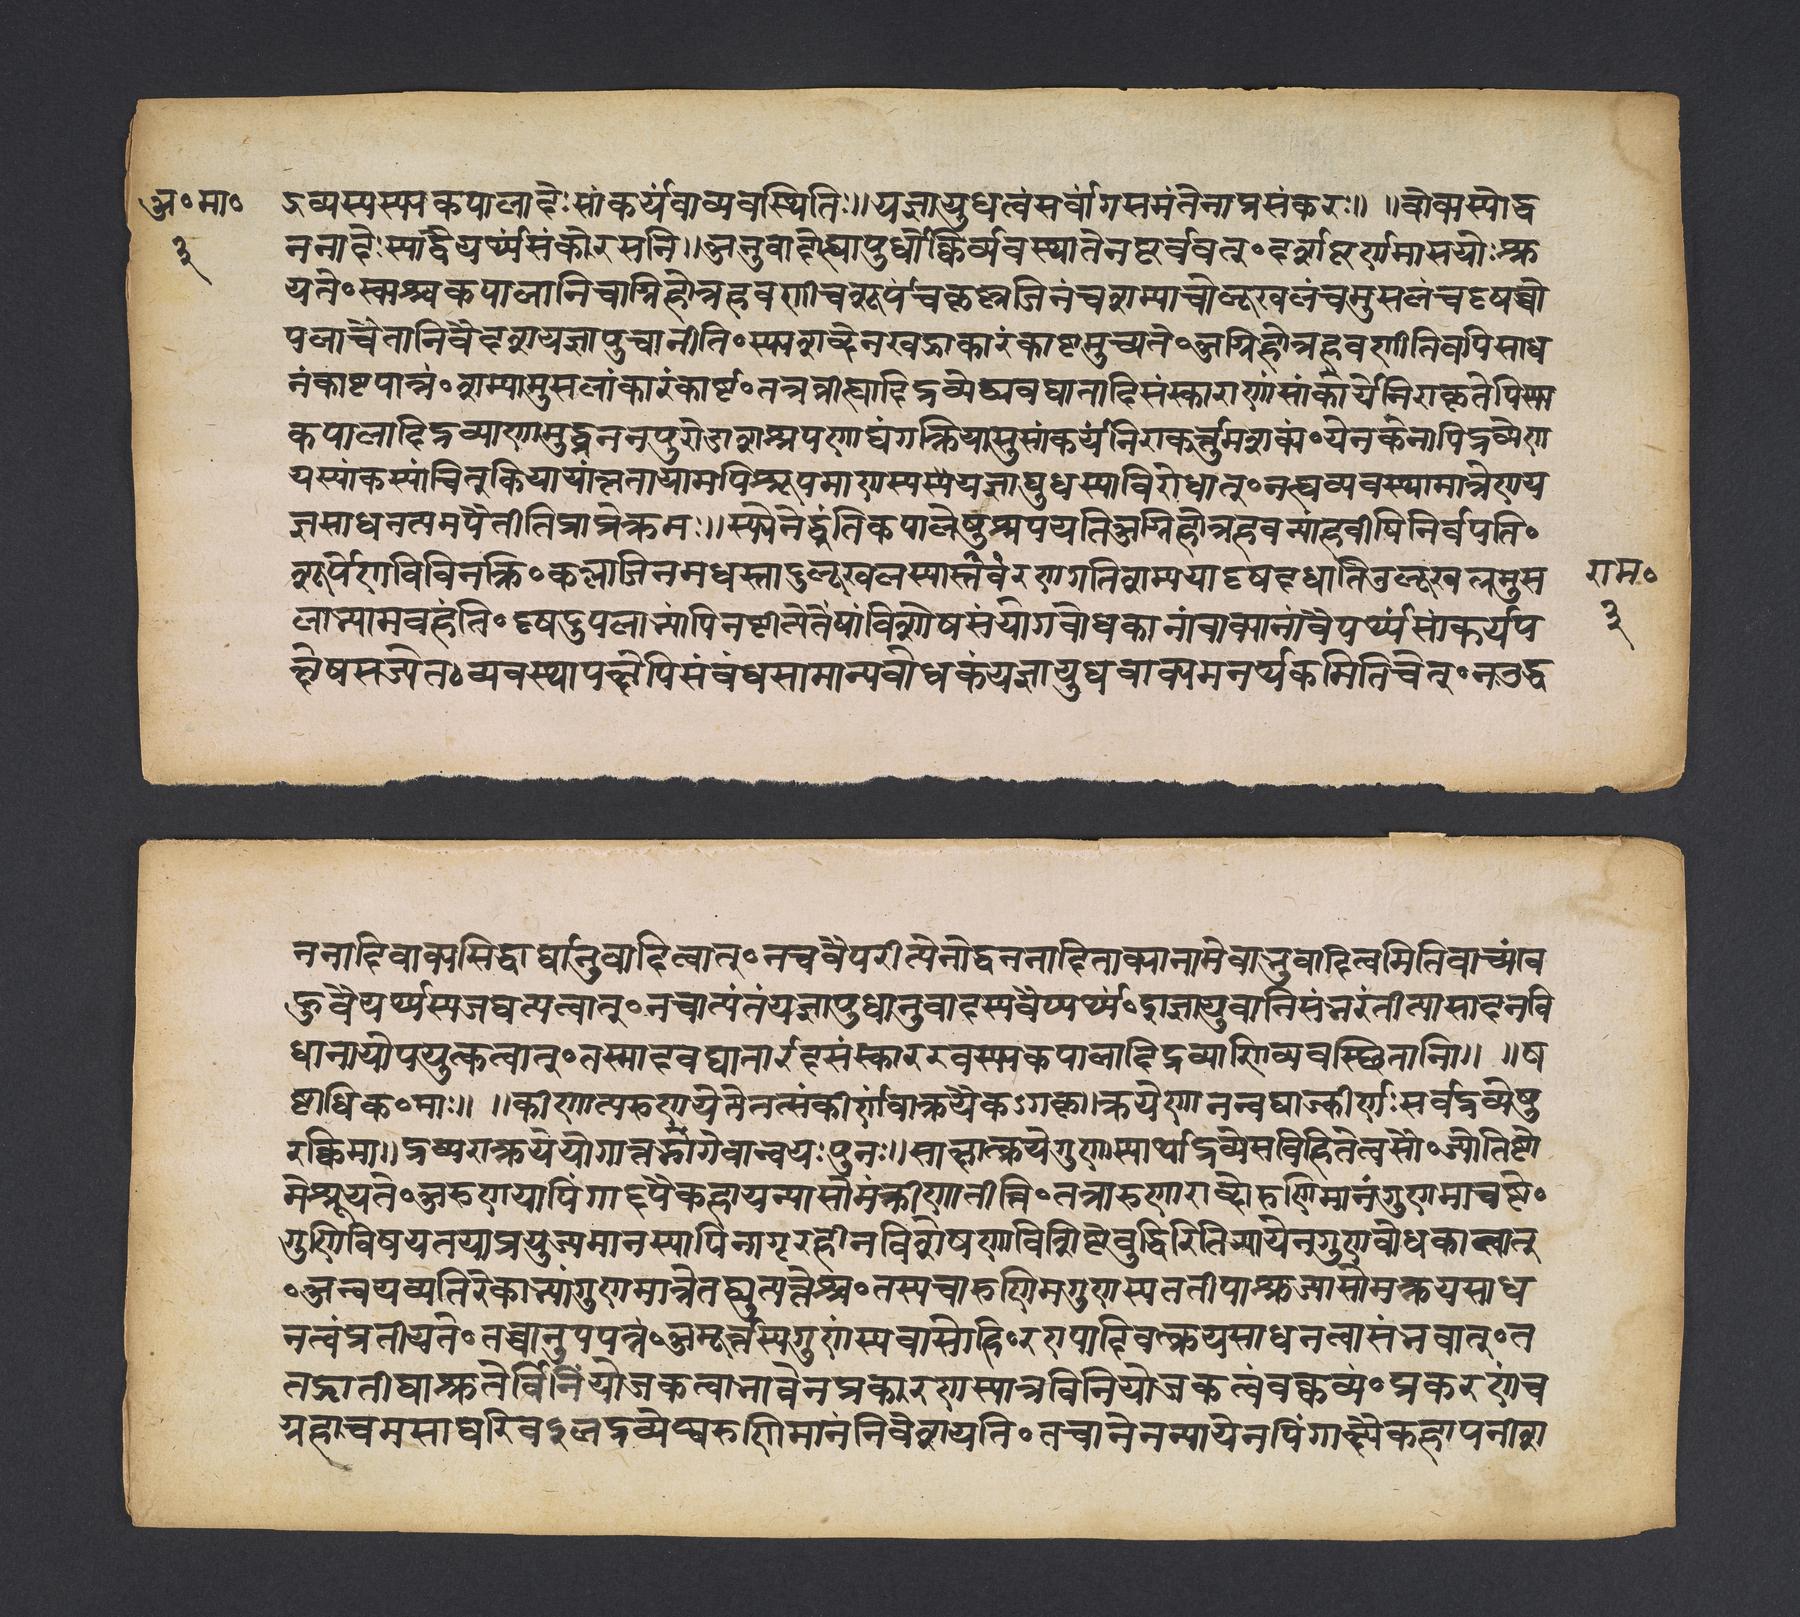 अ॰मा॰
३
ऽव्यस्यस्फ्यकपालादेः सांकर्यं वाव्यवस्थितिः॥ यज्ञायुधत्वं सर्वांगसमंतेनात्रसंकरः॥ ॥वोक्यस्योद्ध
ननादेः स्याद्वैयर्थ्यसंकोरसनि॥ अनुवादोह्यापुधोक्तिर्व्यवस्थातेनष्टर्वववत्॰ दर्शाष्टर्णमासयोःश्रू
यते॰ स्फ्यश्चकपालानिचाग्निहोत्रहवणीचशूर्पंचकृष्णाजिनंचशम्याचोलूखलंचमुसलंचदृषच्चो
पलाचैतानिवैदशयज्ञापुधानीति॰ स्फ्यशब्देनखड्गाकारंकाष्टमुच्यते॰ अग्निहोत्रहवणीतिवपिसाध
नंकाष्टपात्रं॰ शम्यामुसलांकारंकाष्टं॰ तत्रव्रीह्यादिद्रव्येष्ववघातादिसंस्काराणांसांकार्येनिराकृतेपिस्फ्य
कपालादिद्रव्याणामुद्धननपुरोडाशश्रपणाद्यंगक्रियासुसांकर्यंनिराकर्त्तुमशक्यं॰ येनकेनापिद्रव्येण
यस्यांकस्यांचित्क्रियायांकृतायामपिश्रूपमाणस्यस्फ्ययज्ञायुधस्याविरोधात्॰ नह्यव्यवस्थामात्रेणय
ज्ञसाधनत्वमपैतीतिप्राप्नेक्रमः॥ स्फ्येनोद्धंतिकपालेषुश्रपयतिअग्निहोत्रहवण्यांहवींषिनिर्वपति॰
शूर्पेणविविनक्ति॰ कृष्णाजिनमधस्तादुलूखलस्यास्तंवंरणगतिशम्ययादृषदधातिउलूखलमुस
लाभ्यामवहंति॰ दृषदुपलाभ्यांपिनष्टीत्येतेषांविशेषसंयोगबोधकानांवाक्यानांवैपर्थ्यंसांकर्यप
क्षेषसज्येत॰ व्यवस्थापक्षेपिसंबंधसामान्यबोधकंयज्ञायुधवाक्यमनर्थकमितिचेत्॰ नउद्ध
राम॰
३
ननादिवाक्यसिद्धार्थानुवादित्वात्॰ नचवैपरीत्येनोद्धननादिवाक्यानामेवानुवादित्वमितिवाच्यंब
हुवैयर्थ्यसजघत्यत्वात्॰ नचात्यंतंयज्ञायुधानुवादस्यवैय्यर्थ्यं॰ दाज्ञायुवानिसंभरंतीत्यासादनवि
धानायोपयुक्तत्वात्॰ तस्मादवघातार्रदसंस्काररवस्फ्यकपालादिद्रव्याणिव्यवस्थितानि॥ ॥ष
ष्टाधिक॰माः॥ ॥क्रीणात्यरुणयेतेतत्संकीर्णांवाक्रयैकऽगका॥ क्रयेणानन्वयाज्कीर्णाः सर्वद्रव्येषु
रक्तिमा॥ द्रव्यराक्रययोगात्तर्भागेवान्वयः पुनः॥ साक्षात्क्रयेगुणस्यार्थाद्रव्येसविहितेत्वसौ॰ ज्योतिष्टो
मेश्रूयते॰ अरुणयापिंगाक्ष्यैकहायन्यासोमंक्रीणातीति॰ तत्रारुणाशब्दोरुणिमानंगुणमाचष्टे॰
गुणिविषयतयाप्रयुज्यमानस्यापिनागृरहीनविशेषणाविशिष्टेबुद्धिरितिन्यायेनगुणबोधकात्वात्
॰ अन्वयव्यतिरेकाभ्यांगुणमात्रेतद्व्युत्पत्तेश्च॰ तस्यचारुणिमगुणस्यततीपाश्रुत्यासोमक्रयसाध
नत्वंप्रतीयते॰ तच्चानुपपन्नं॰ अमूर्त्तस्यगुणांस्यवासोहि॰ रणपादिवत्क्रयसाधनत्वासंभवात्॰ त
तस्तृतीयाश्रुतेर्विनियोजकत्वाभावेनप्रकारणस्यात्रविनियोजकत्वंवक्तव्यं॰ प्रकरणंच
ग्रहाचमसाद्यरिवऽलद्रव्येष्वरुणिमानंनिवेशयति॰ तचानेनन्यायेनपिंगाक्ष्यैकहापनीशा